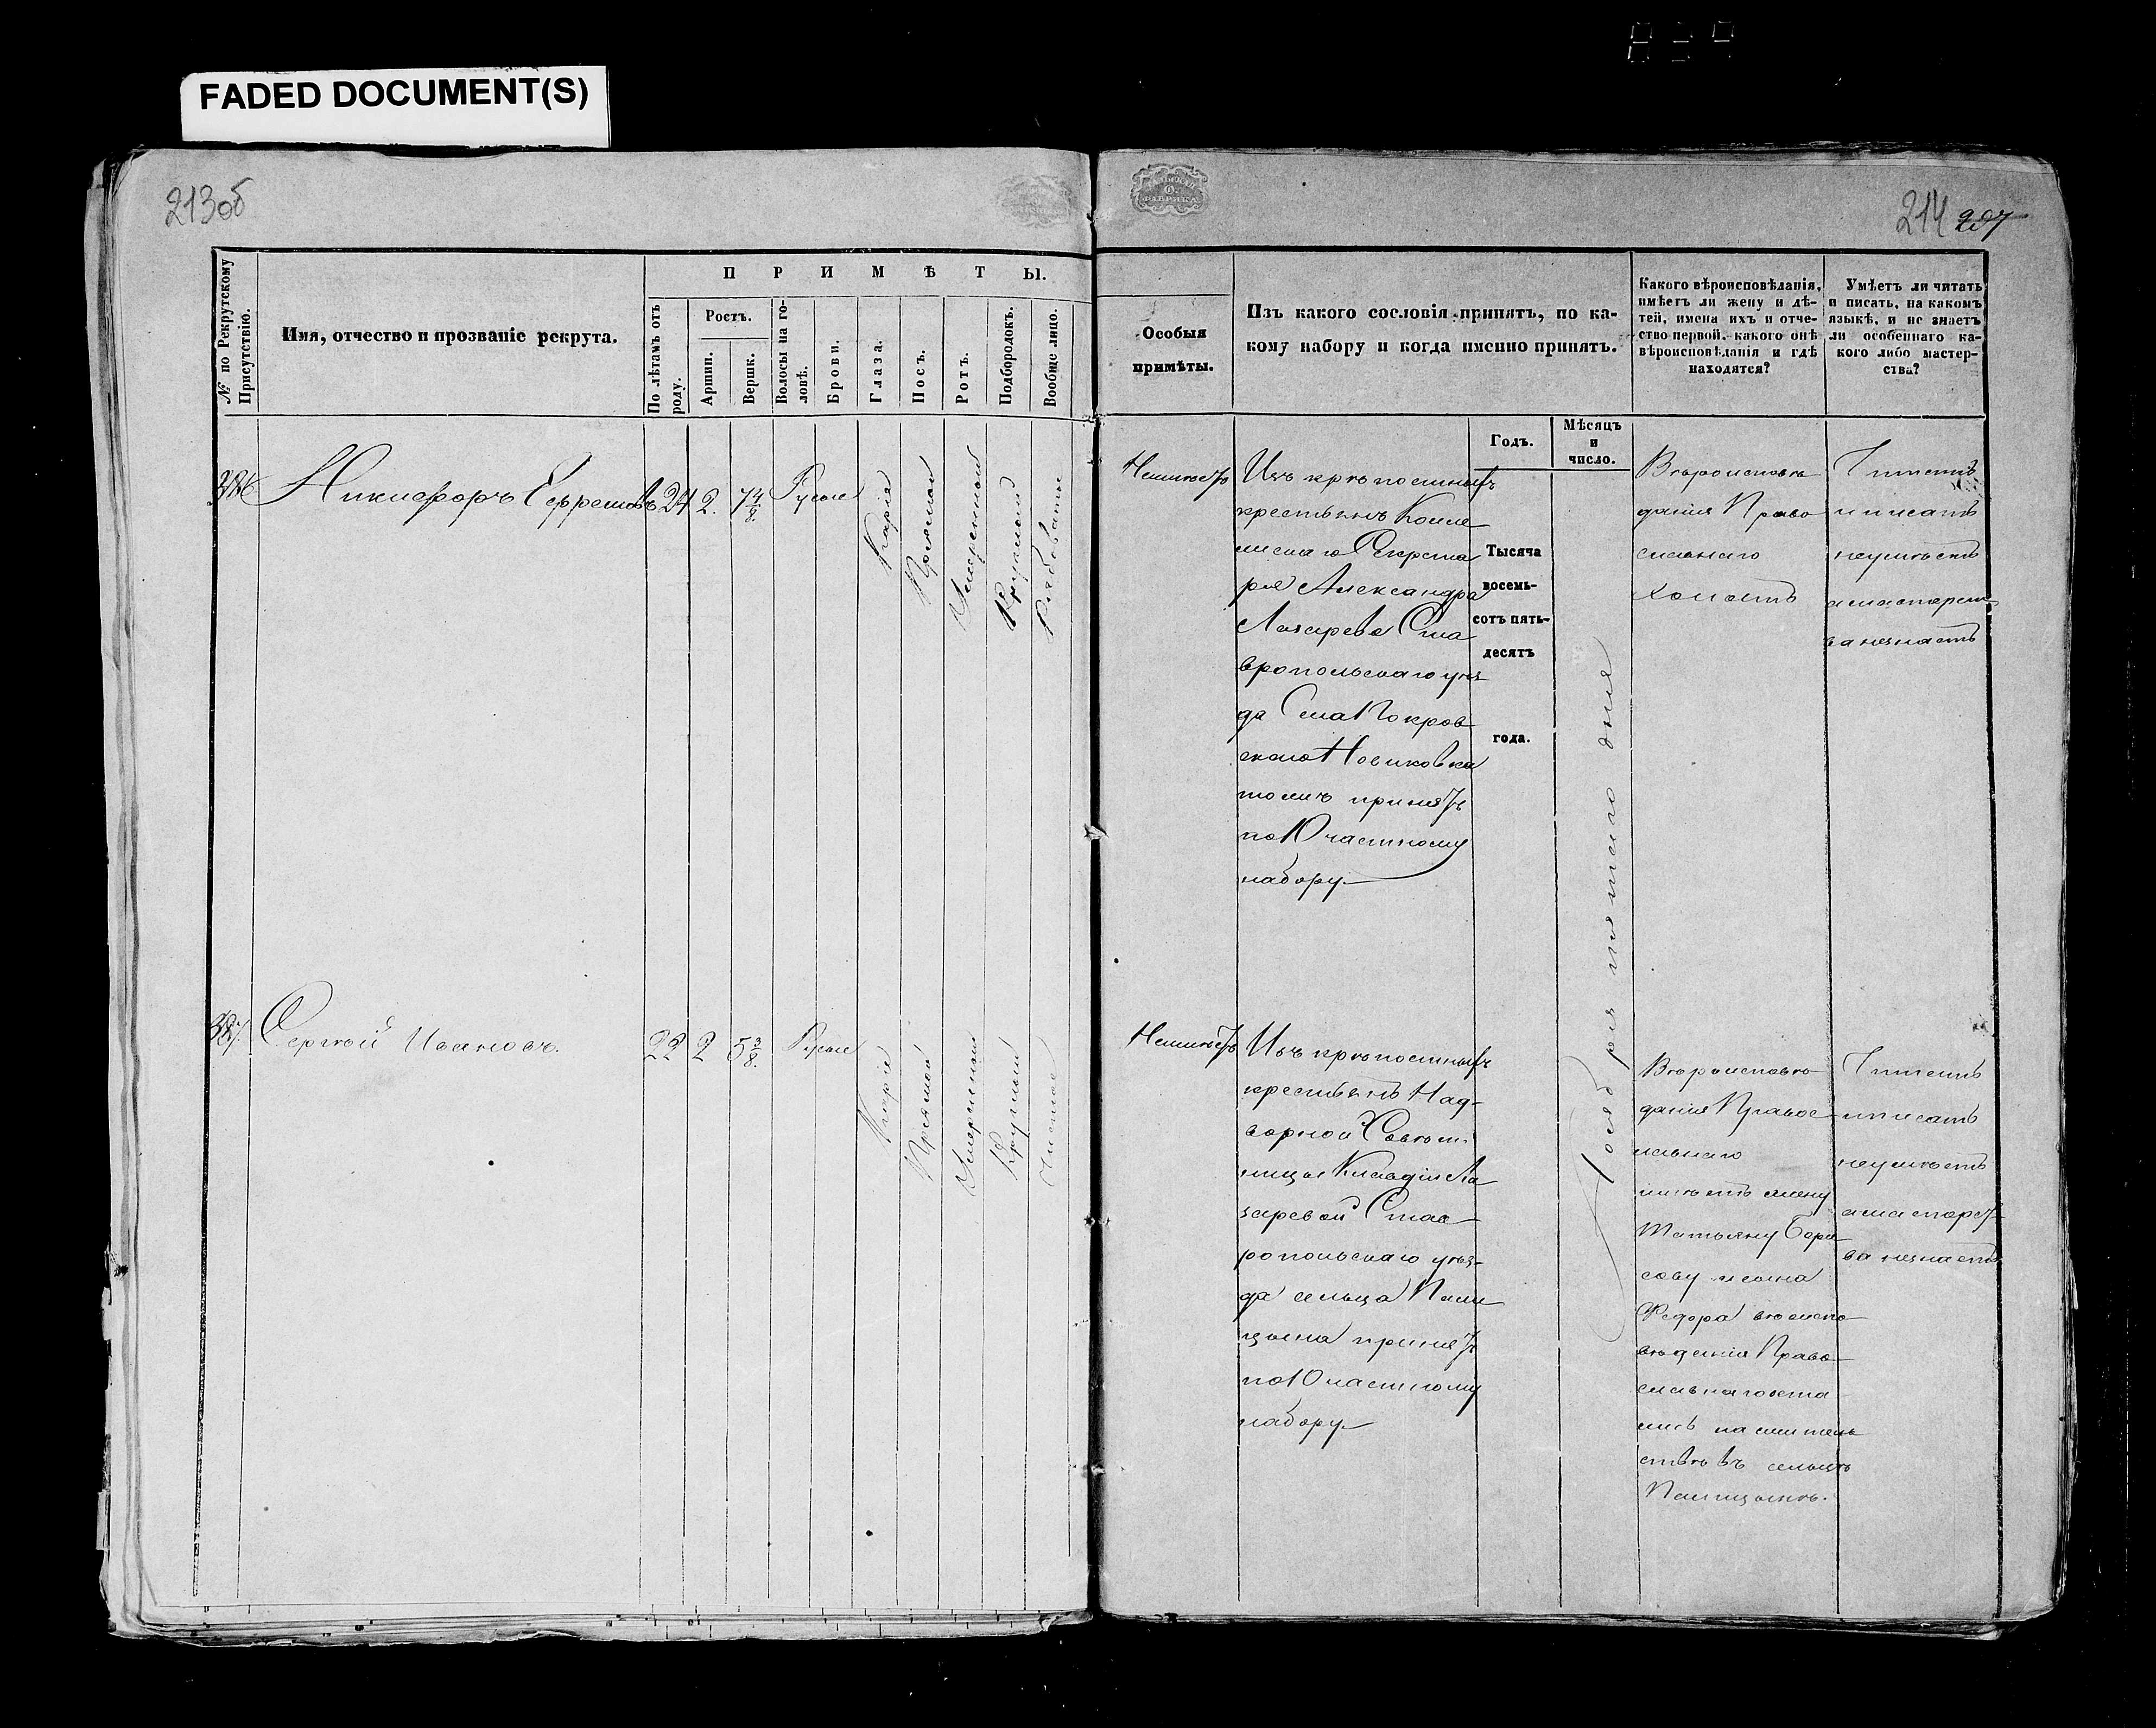 FADED DOCUMENT(S)
213об
214 207
№ по Рекрутскому Присутствію.
Имя, отчество и прозваніе рекрута.
ПРИМѢТЫ.
По лѣтамъ отъ роду.
Ростъ.
Аршин.
Вершк.
Волосы на головѣ.
Брови.
Глаза.
Носъ.
Ротъ.
Подбородокъ.
Вообще лицо.
Особыя
примѣты.
Изъ какого сословія принятъ, по ка-
кому набору и когда именно принятъ.
Какого вѣроисповѣданія,
имѣетъ ли жену и дѣ-
тей, имена ихъ и отче-
ство первой, какого онѣ
вѣроисповѣданія и гдѣ
находятся?
Умѣетъ ли читать
и писать, на какомъ
языкѣ, и не знаетъ
ли особеннаго ка-
кого либо мастер-
ства?
Годъ.
Мѣсяцъ
и
число.
386 Никифоръ Ефремовъ 24 2. 7 4/8. Русые
Каріе
Прямой
Умѣренный
Круглый
Рябоватое
Неимѣетъ
Изъ крѣпостныхъ
крестьянъ Колле
жскаго Секрета
ря Александра
Лазарева Ста
вропольскаго уѣз
да Села Покров
скаго Новиковка
тожъ принятъ
по 10 частному
набору.
Тысяча
восемь-
сотъ пять-
десятъ
года.
Ноября пятаго дня
Вѣроисповѣ
данія Право
славнаго
холостъ
Читать
и писать
неумѣетъ
а мастерст
ва незнаетъ
387. Сергѣй Ивановъ. 22 2 5 3/8. Русые
Каріе
Прямой
Умѣренный
Круглый
Чистое
Неимѣетъ
Изъ крѣпостныхъ
крестьянъ Над-
ворной Совѣт-
ницы Клавдіи Ла
заревой Став-
ропольскаго уѣз-
да сельца
принятъ
по 10 частному
набору.
Вѣроисповѣ
данія Правос-
лавнаго
имѣетъ жену
Татьяну Бори-
сову и сына
Федора вѣроиспо
вѣданія Право-
славнаго оста
лись на житель
ствѣ въ сельцѣ
Читать
и писать
неумѣетъ
а мастерст-
ва незнаетъ